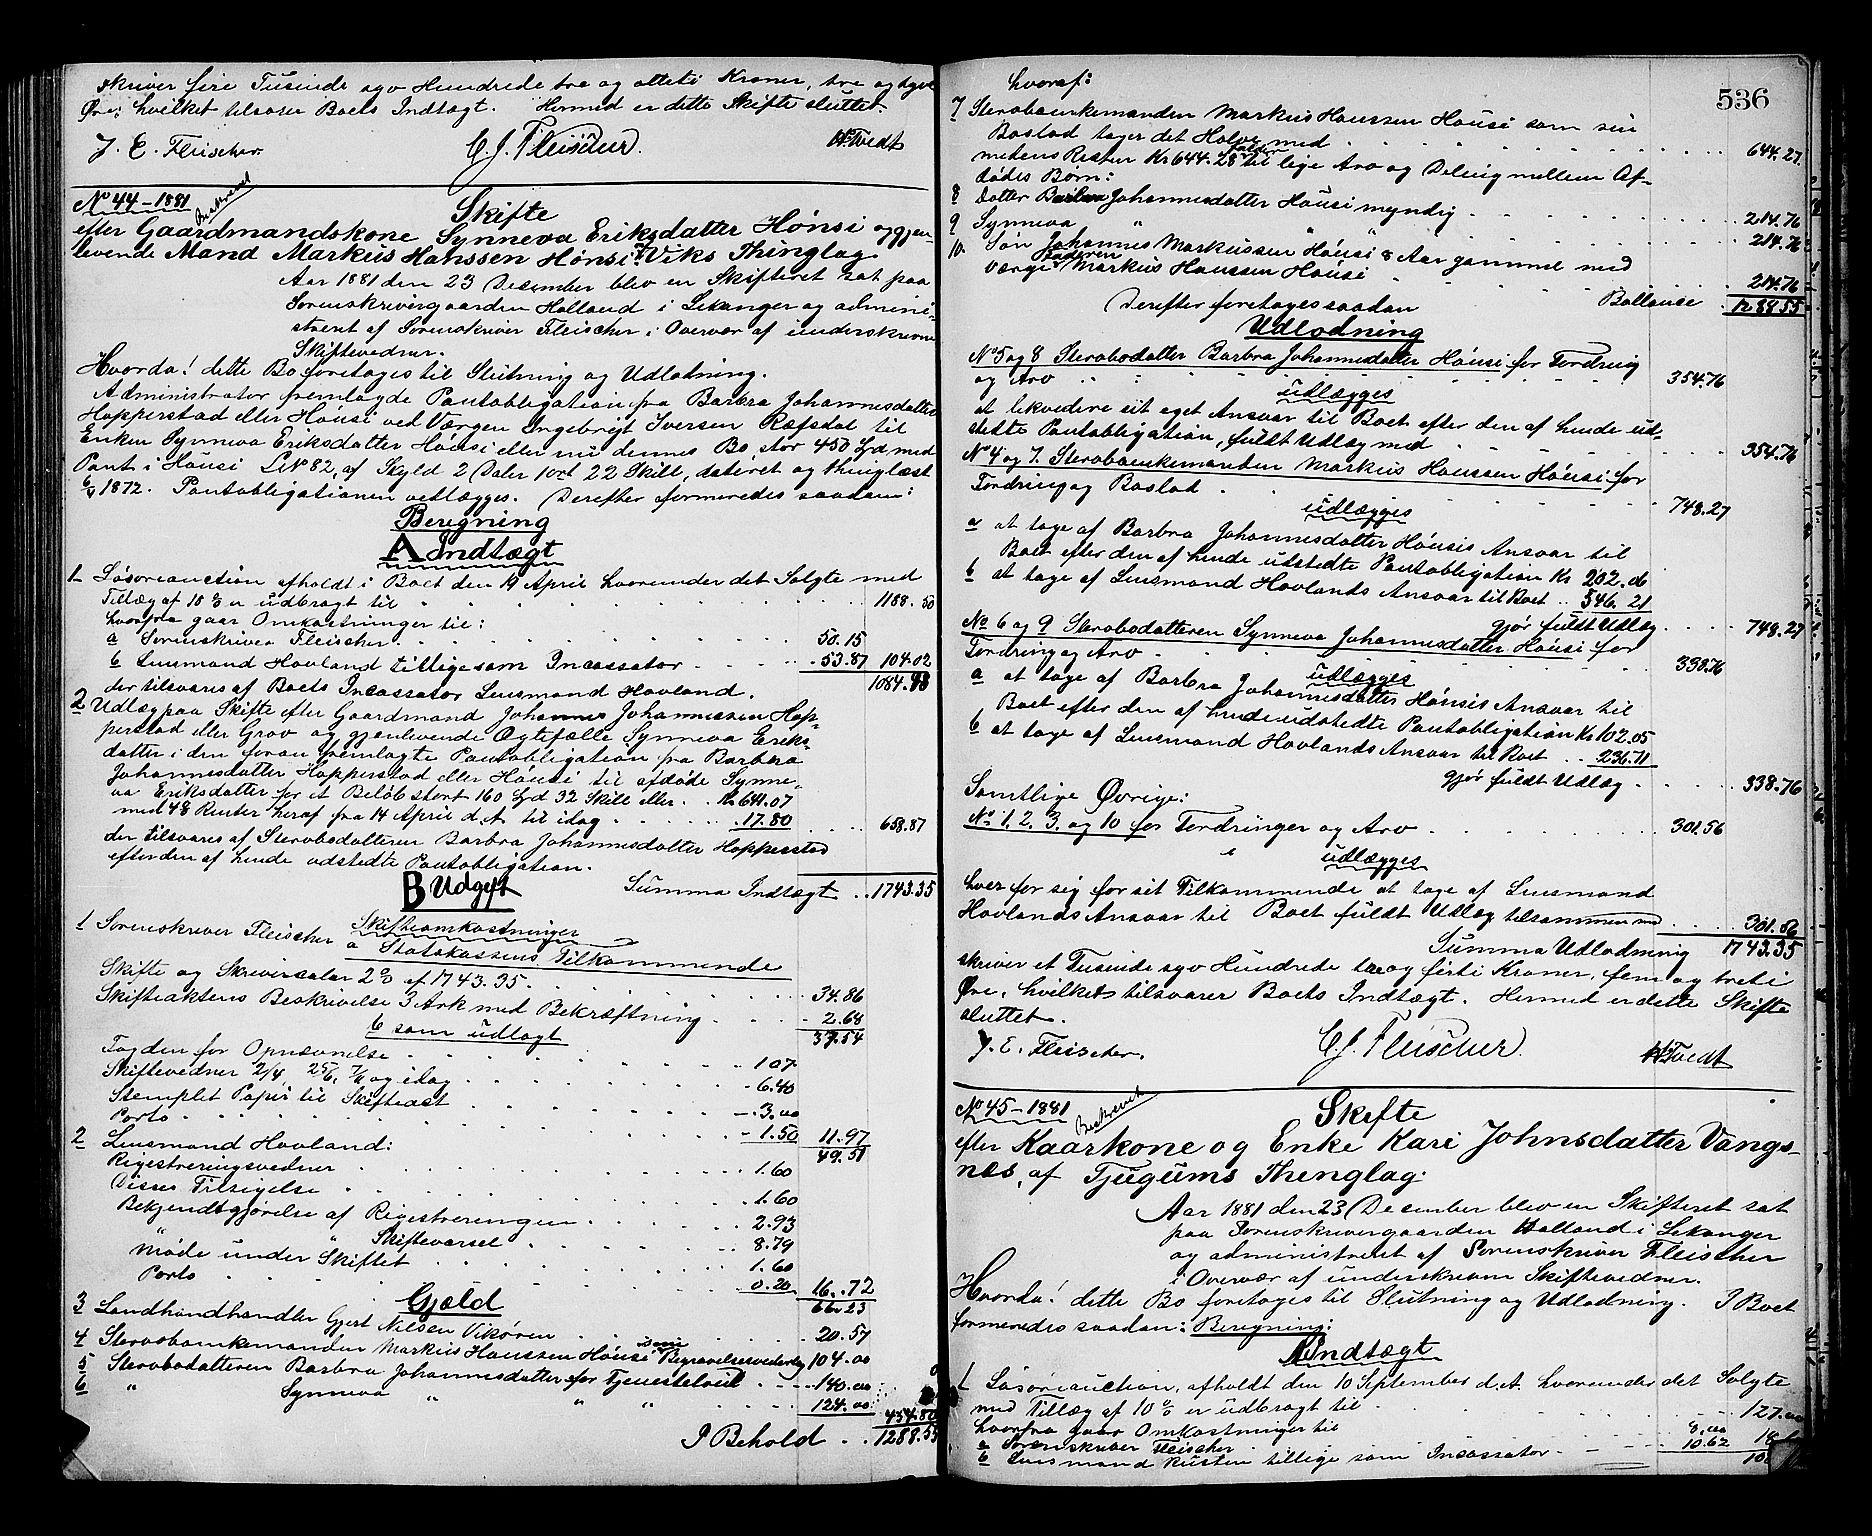 skriver fire Tusinde syv Hundrede tre og otteti Kroner, tre og tyve
Øre; hvilket tilsvarer Boets Indtægt. Hermed er dette Skifte sluttet.
J. E. Fleischer. C. J. Fleischer. H. Tvedt
No 44-1881 Beskrevet
Skifte
efter Gaardmandskone Synneva Eriksdatter Hønsi og gjen-
levende Mand Markus Hanssen Hønsi, Viks Thinglag
Aar 1881 den 23 December blev en Skifteret sat paa
Sorenskrivergaarden Holland i Lekanger og admini-
streret af Sorenskriver Fleischer i Overvær af underskrevne
Skiftevedner.
Hvorda! dette Bo foretoges til Slutning og Udlodning.
Administrator fremlagde Pantobligation fra Barbra Johannesdatter
Hopperstad eller Hønsi ved Værgen Ingebregt Iversen Refsdal til
Enken Synneva Eriksdatter Hønsi eller nu dennes Bo, stor 450 Spd med
Pant i Hønsi LN 82, af Skyld 2 Daler 1 ort 22 Skill, dateret og thinglæst
1872. Pantobligationen vedlægges. Derefter formeredes saadan:
Beregning
A Indtægt
1 Løsøreauction afholdt i Boet den 19 April hvorunder det Solgte med
Tillæg af 10 % er udbragt til 1188.50
hvorfra gaar Omkostninger til:
a Sorenskriver Fleischer 50.15
b Lensmand Hovland tilligesom Incassator 53.87 104.02
der tilsvares af Boets Incassator Lensmand Hovland. 1084.48
2 Udlæg paa Skifte efter Gaardmand Johannes Johannessen Hop-
perstad eller Grov og gjenlevende Ægtefælle Synneva Eriks-
datter i den foran fremlagte Pantobligation fra Barbra
Johannesdatter Hopperstad eller Hønsi til afdøde Synne-
va Eriksdatter for et Beløb stort 160 Spd 32 Skill eller Kr 641.07
med 4% Renter heraf fra 14 April d. A. til idag 17.80 658.87
der tilsvares af Stervbodatteren Barbra Johannesdatter Hopperstad
efter den af hende udstedte Pantobligation.
Summa Indtægt 1743.35
B Udgift
Skifteomkostninger
1 Sorenskriver Fleischer
a Statskassens Tilkommende
Skifte og Skriversalær 2% af 1743.35. 34.86
Skifteaktens Beskrivelse 3 Ark med Bekræftning 2.68
37.54
b som udlagt
Fogden for Opnævnelse 1.07
Skiftevedner 2/4 25/6, og idag 6.40
Stemplet Papir til Skifteact 3.00
Porto 1.50 11.97
49.51
2 Lensmand Hovland:
Registreringsvedner 1.60
Disses Tilsigelse 1.60
Bekjendtgjørelse af Registreringen 2.93
" " Skiftevarsel 8.79
Møde under Skiftet 1.60
Porto 0.20 16.72
66.23
Gjæld
3 Landhandhandler Gjert Nilsen Vikøren 20.57
4 Stervboenkemanden Markus Hanssen Hønsi Begravelsesvederlag 104.00
5 Stervbodatteren Barbra Johannesdatter for Tjenesteløn 140.00
6 " Synneva " " " 124.00
454.80
I Behold 1288.55
536
hvoraf:
7 Stervboenkemanden Markus Hanssen Hønsi som sin
Boslod tager det Halve med 644.27.
medens Resten Kr 644.28 falder til lige Arv og Deling mellem Af-
dødes Børn:
8 Datter Barbra Johannesdatter Hønsi myndig 214.76
9 Synneva " " " 214.76
10. Søn Johannes Markussen Hønsi 8 Aar gammel med
Værge Faderen Markus Hanssen Hønsi 214.76
Ballance 1288.55
Derefter foretoges saadan
Udlodning
No 5 og 8 Stervbodatter Barbra Johannesdatter Hønsi for Fordring
og Arv 354.76
udlægges
at likvedere sit eget Ansvar til Boet efter den af hende ud-
stedte Pantobligation, fuldt Udlæg med 354.76
No 4 og 7. Stervboenkemanden Markus Hanssen Hønsi for
Fordring og Boslod 748.27
udlægges
a at tage af Barbra Johannesdatter Hønsis Ansvar til
Boet efter den af hende udstedte Pantobligation Kr 202.06
b at tage af Lensmand Hovlands Ansvar til Boet 546.21
gjør fuldt Udlæg 748.27
No 6 og 9 Stervbodatteren Synneva Johannesdatter Hønsi for
Fordring og Arv 338.76
udlægges
a at tage af Barbra Johannesdatter Hønsis Ansvar til
Boet efter den af hende udstedte Pantobligation Kr 102.05
b at tage af Lensmand Hovlands Ansvar til Boet 236.71
gjør fuldt Udlæg 338.76
Samtlige Øvrige:
No 1. 2. 3. og 10 for Fordringer og Arv 301.56
udlægges
hver for sig for sit Tilkommende at tage af Lensmand
Hovlands Ansvar til Boet fuldt Udlæg tilsammen med 301.56
Summa Udlodning 1743.35
skriver et Tusinde syv Hundrede tre og førti Kroner, fem og treti
Øre, hvilket tilsvarer Boets Indtægt. Hermed er dette Skifte
sluttet.
J. E. Fleischer. C. J. Fleischer. H. Tvedt
No 45-1881 Beskrevet
Skifte
efter Kaarkone og Enke Kari Johnsdatter Vangs-
nes, af Tjugums Thinglag:
Aar 1881 den 23 December blev en Skifteret sat
paa Sorenskrivergaarden Holland i Lekanger
og administreret af Sorenskriver Fleischer
i Overvær af underskrevne Skiftevedner.
Hvorda! dette Bo foretoges til Slutning og Udlodning. I Boet
formeredes saadan: Beregning:
A Indtægt
1 Løsøreauction, afholdt den 10 September d. A. hvorunder det Solgte
med Tillæg af 10 % er udbragt til 127.00
hvorfra gaar Omkostninger til
a Sorenskriver Fleischer 8.00
b Lensmand Husten tillige som Incassator 10.62